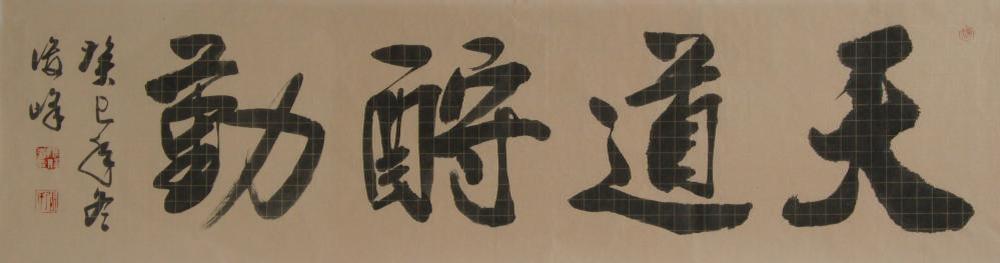 天道酧勤
癸巳年冬
俊峰